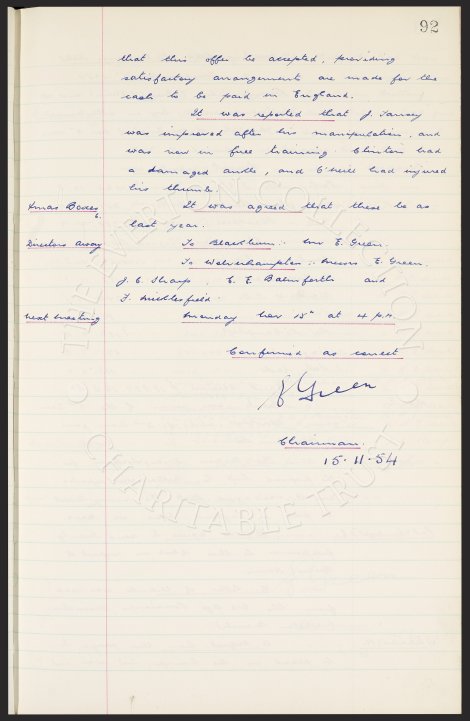 92
that this offer be accepted, providing
satisfactory arrangements are made for the
cash to be paid in England.
It was reported that J. Tansey
was improved after his manipulation, and
was now in full training Clinton had
a damaged ankle, and O'Neill had injured
his thumb.
Xmas Boxes It was agreed that these be as
last year.
Directors away To Blackburn :- Mr E. Green.
To Wolverhampton :- Messrs E. Green.
J. C. Sharp, C. E. Balmforth and
F. Micklesfield.
next meeting Monday Nov 15th at 4 p.m.
Confirmed as correct
Green
Chairman.
15.11.54
THE EVERTON COLLECTION
CHARITABLE TRUST